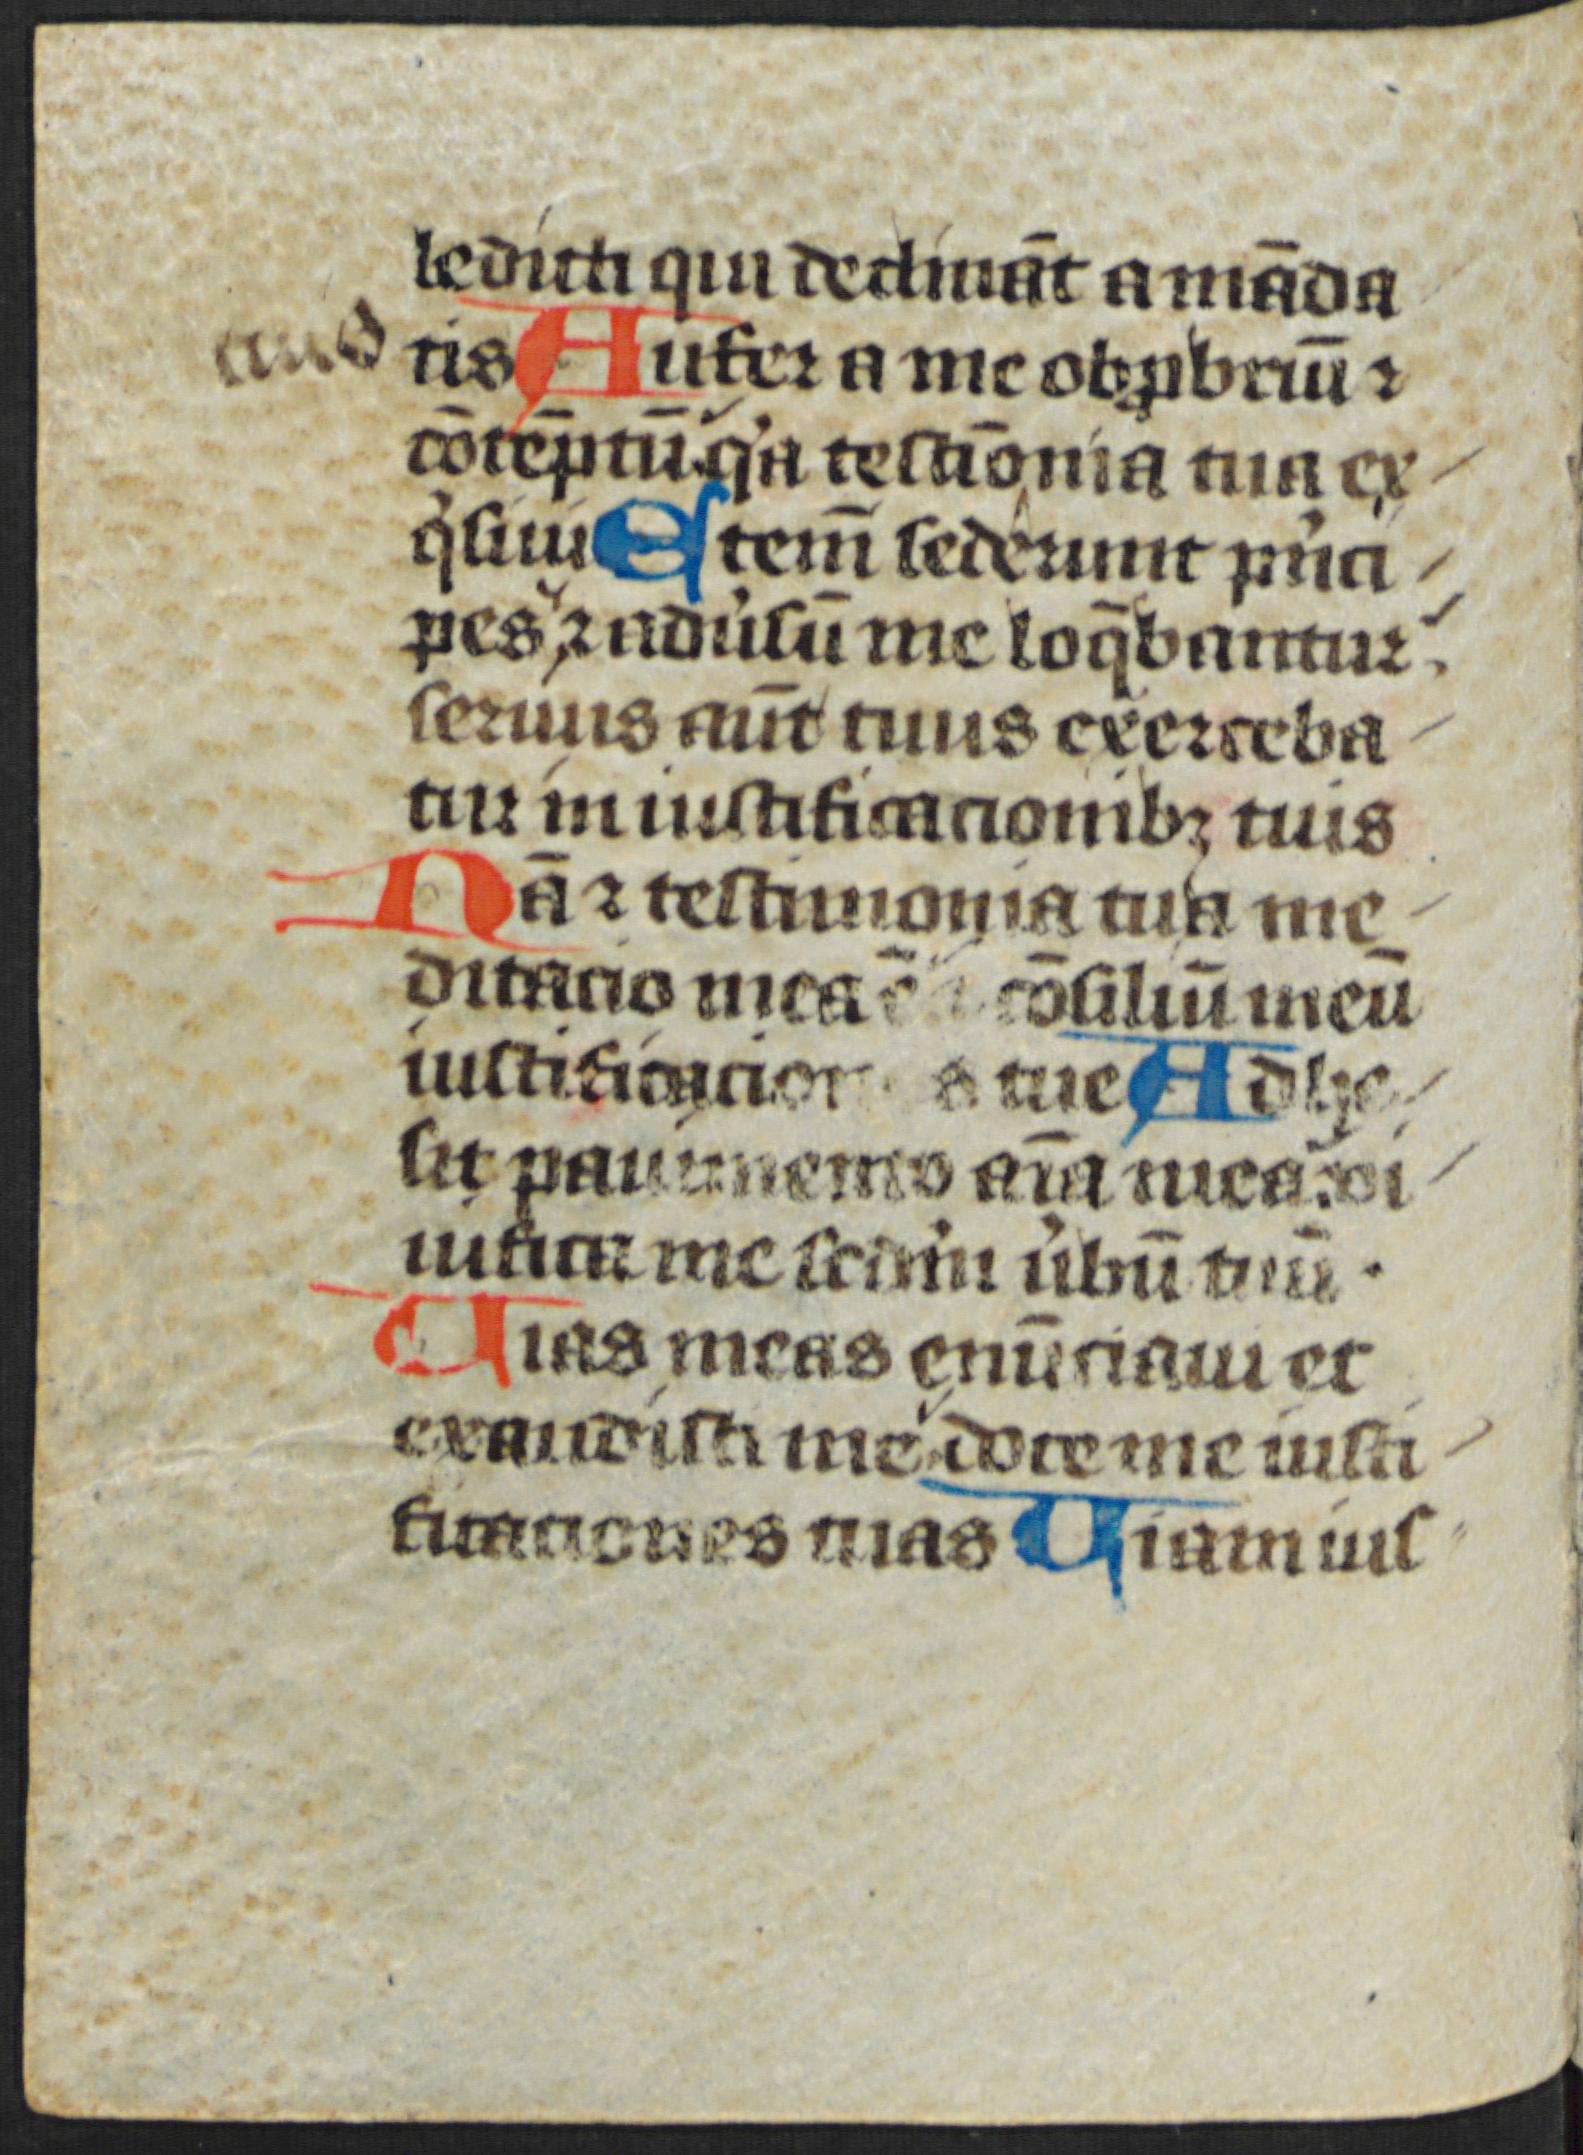 ledicti qui declināt a māda
tuis tis Aufer a me obꝓbriū ⁊
cōtēptū qͥa testiōnia tua ex
qͥsiui Etem̄ sederunt pͥnci
pes ⁊ adusū me loq̄bantur
seruus aūt tuus exerceba
tur in iustificacionibꝫ tuis
Nā ⁊ testimonia tua me
ditacio mea ē cōsiliū meū
iustificacion s tue Adhe
sit pauimento aīa mea vi
uifica me scdm ubū tuū ·
Uias meas enūciaui et
exaudisti me doce me iusti
ficaciones tuas Uiam ius